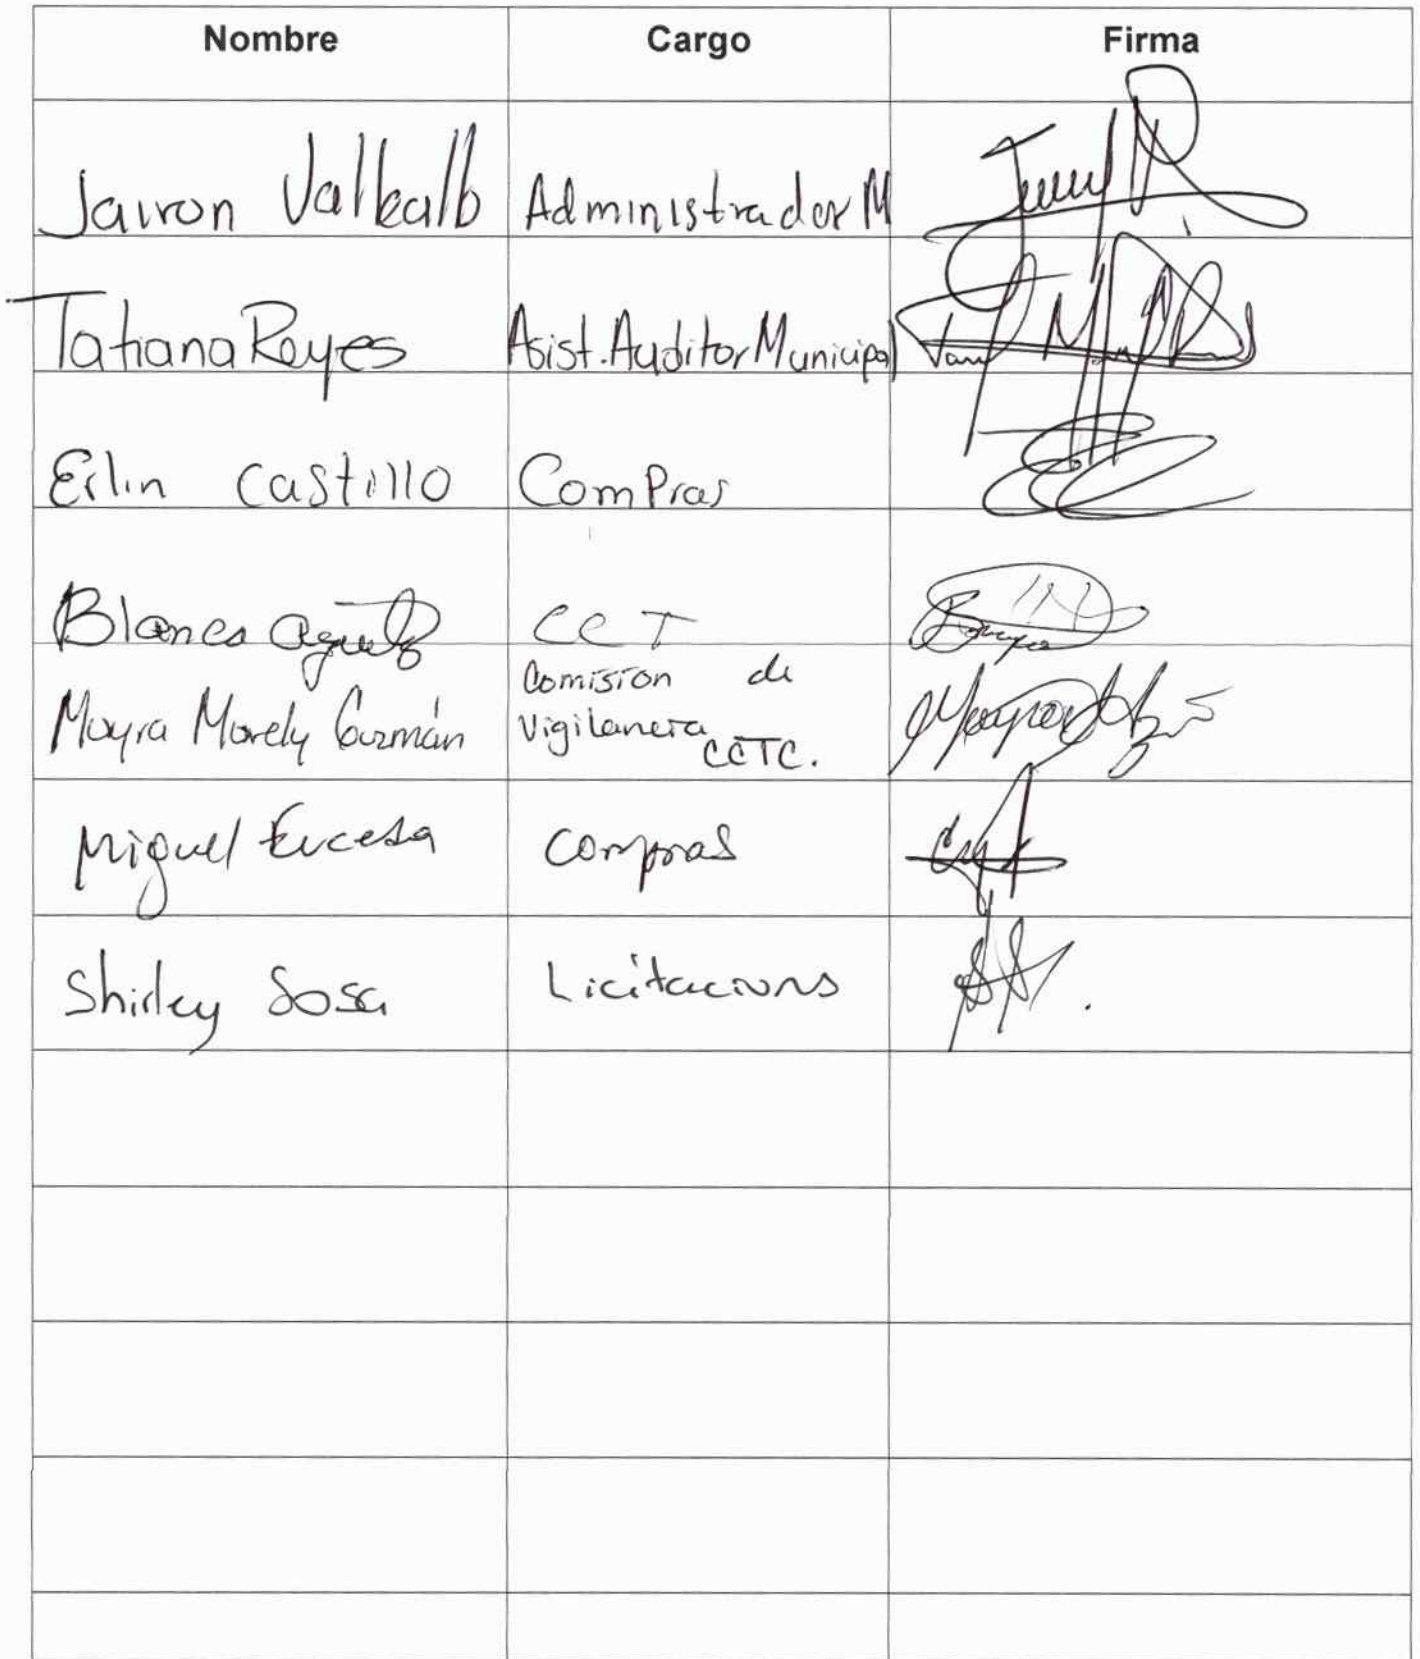 Nombre Cargo Firma
Jairon Valkalb Administrador M
Tatiana Reyes Asist. Auditor Municipal
Erlin Castillo Compras
Blanca CCT
Mayra Marely Guzmán Comisión de
Vigilancia
CCTC.
Miguel Compras
Shirley Sosa Licitacions